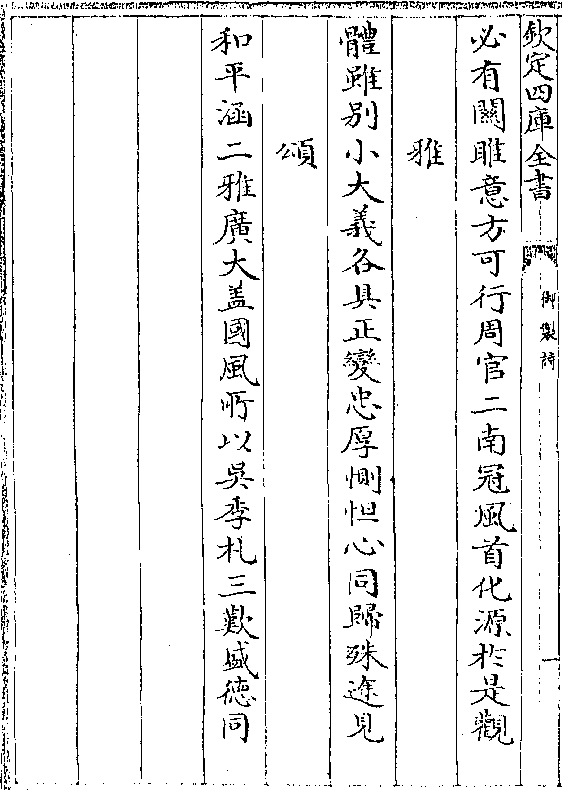 欽定四庫全書
御製詩
一
必有關雎意方可行周官二南冠風首化源於是觀
雅
體雖别小大義各具正變忠厚惻怛心同歸殊途見
頌
和平涵二雅廣大盖國風所以吳季札三歎盛徳同